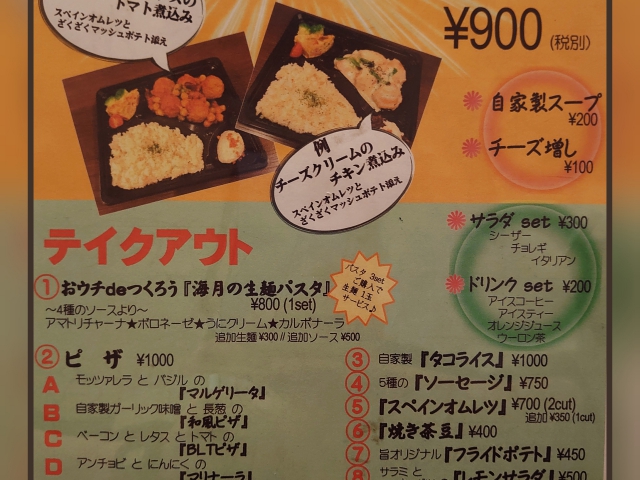 トマト煮込み
スペインオムレツと
ざくざくマッシュポテト添え
¥900 (税別)
例
チーズクリームの
チキン煮込み
スペインオムレツと
ざくざくマッシュポテト添え
自家製スープ
¥200
チーズ増し
¥100
サラダ set ¥300
シーザー
チョレギ
イタリアン
ドリンク set ¥200
アイスコーヒー
アイスティー
オレンジジュース
ウーロン茶
テイクアウト
① おウチdeつくろう『海月の生麺パスタ』
¥800 (1set)
～4種のソースより～
アマトリチャーナ★ボロネーゼ★うにクリーム★カルボナーラ
追加生麺 ¥300 // 追加ソース ¥500
パスタ 3set
ご購入で
生麺 1玉
サービス♪
② ピザ ¥1000
A モッツァレラ と バジル の
『マルゲリータ』
B 自家製ガーリック味噌 と 長葱 の
『和風ピザ』
C ベーコン と レタス と トマト の
『BLTピザ』
D アンチョビ と にんにく の
『マリナーラ』
③ 自家製 『タコライス』 ¥1000
④ 5種の 『ソーセージ』 ¥750
⑤ 『スペインオムレツ』 ¥700 (2cut)
追加 ¥350 (1cut)
⑥ 『焼き茶豆』 ¥400
⑦ 旨オリジナル 『フライドポテト』 ¥450
⑧ サラミ と
『レモンサラダ』 ¥500